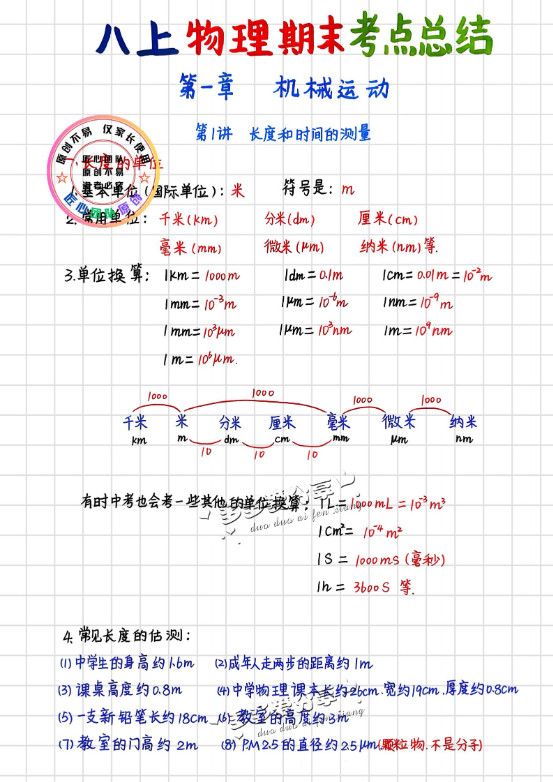 八上物理期末考点总结
第一章 机械运动
第1讲 长度和时间的测量
原创不易 仅家长使用
匠心团队 原创
匠心团队
原创不易
盗者必究
一、长度的单位
1.基本单位(国际单位): 米 符号是: m
2.常用单位: 千米(km) 分米(dm) 厘米(cm)
毫米(mm) 微米(μm) 纳米(nm)等.
3.单位换算: 1km=1000m 1dm=0.1m 1cm=0.01m=10⁻²m
1mm=10⁻³m 1μm=10⁻⁶m 1nm=10⁻⁹m
1mm=10³μm 1μm=10³nm 1m=10⁹nm
1m=10⁶μm.
1000 1000 1000 1000
千米 米 分米 厘米 毫米 微米 纳米
km m dm cm mm μm nm
10 10 10
有时中考也会考一些其他的单位换算: 1L=1000mL=10⁻³m³
多多爱分享
duo duo ai fen xiang
1cm²=10⁻⁴m²
1S=1000mS(毫秒)
1h=3600S 等.
4.常见长度的估测:
(1)中学生的身高约1.6m (2)成年人走两步的距离约1m
(3)课桌高度约0.8m (4)中学物理课本长约26cm.宽约19cm.厚度约0.8cm
(5)一支新铅笔长约18cm (6)教室的高度约3m
多多爱分享
duo duo ai fen xiang
(7)教室的门高约2m (8)PM2.5的直径约2.5μm(颗粒物.不是分子)